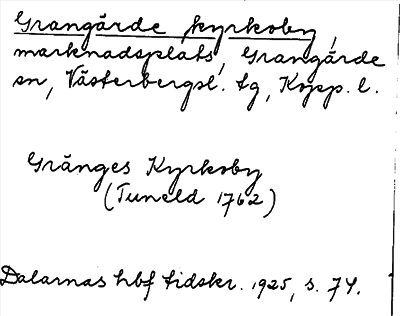 Grangärde kyrkoby,
marknadsplats, Grangärde
sn, Västerbergsl. tg, Kopp. l.
Grånges Kyrkoby
(Tuneld 1762)
Dalarnas hbf tidskr. 1925, s. 74.